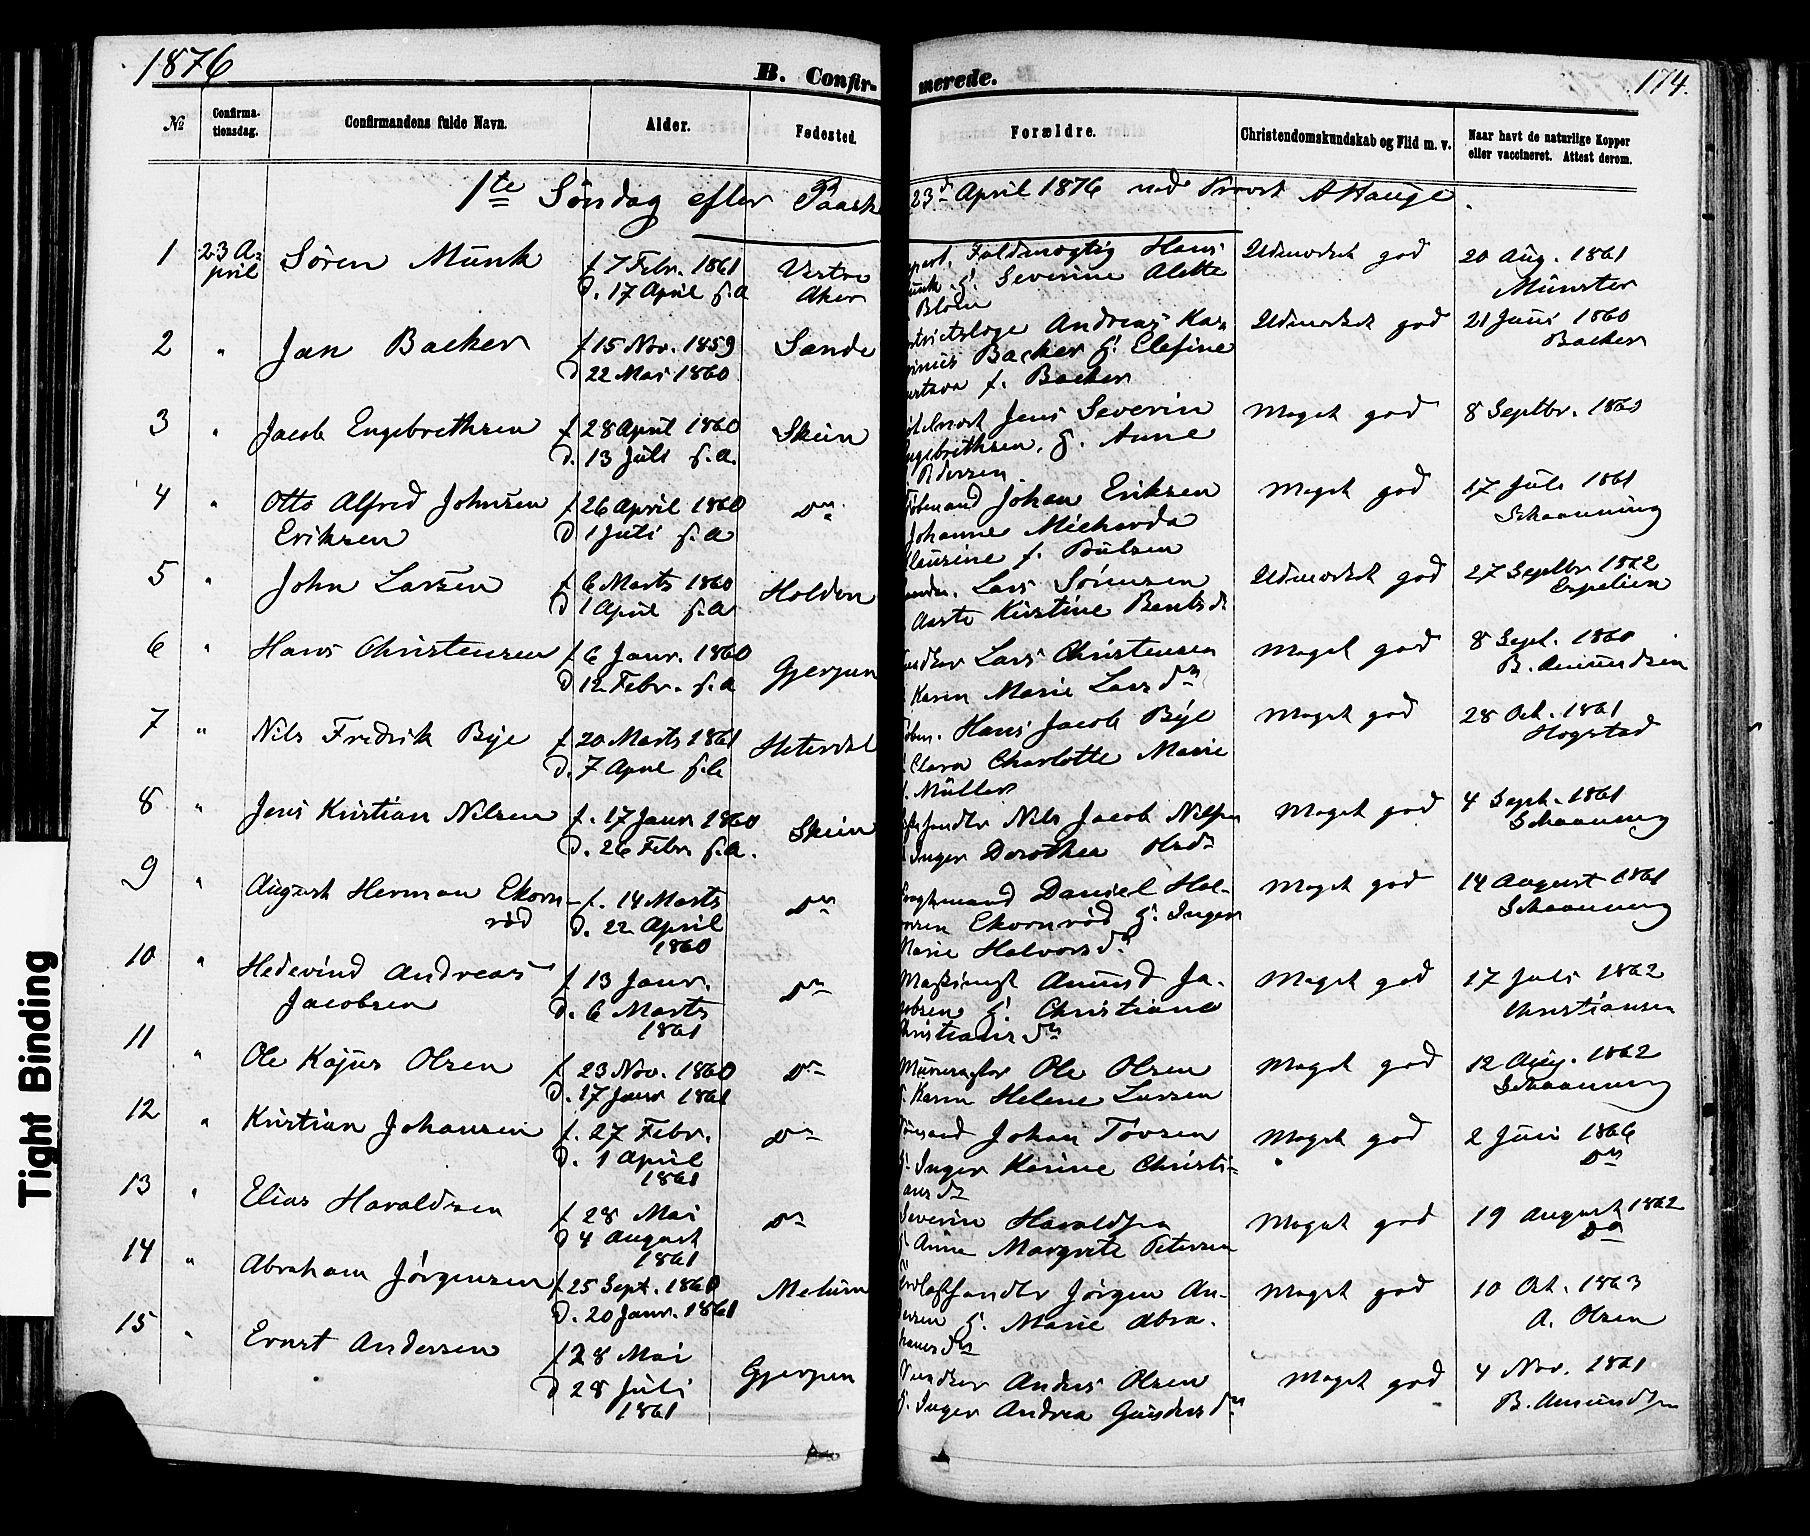 1876
B. Confir-
merede.
174.
№
Confirma-
tionsdag.
Confirmandens fulde Navn.
Alder.
Fødested.
Forældre.
Christendomskundskab og Flid m. v.
Naar havt de naturlige Kopper
eller vaccineret. Attest derom.
1te Søndag efter Paask
23d April 1876 ved Provst A Hauge.
1 23 A-
pril Søren Munk f 7 Febr. 1861
d. 17 April s.a Vestre
Aker
Foldmægtig Hans
Munk g. Severine Alette
Blom
Udmærket god 20 Aug. 1861
Münster
2 " Jan Backer f 15 Nov. 1859
d 22 Mai 1860 Sande
Andreas Kas
Backer g. Elefine
f. Backer
Udmærket god 21 Juni 1860
Backer
3 " Jacob Engebrethsen f 28 April 1860
d. 13 Juli s.a. Skien
Jens Severin
Engebrethsen, g. Anne
Pedersen
Meget god 8 Septbr. 1860
4 " Otto Alfred Johnsen
Eriksen f 26 April 1860
d 1 Juli s.a Do
Johan Eriksen
Johanne Micharda
Laurine f. Poulsen
Meget god 17 Juli 1861
Schaanning
5 " John Larsen f 6 Marts 1860
d 1 April s.a Holden
Lars Sørensen
Aaste Kirstine Bentsdr
Udmærket god 27 Septbr 1862
Espelien
6 " Hans Christensen f 6 Janr. 1860
d 12 Febr. s.a Gjerpen
Lars Christensen
Karen Marie Larsdr
Meget god 8 Sept. 1860
B. Amundsen
7 " Nils Fredrik Bye f 20 Marts 1861
d. 7 April s.a. Hiterdal
Hans Jacob Bye
Clara Charlotte Marie
f. Müller
Meget god 28 Oct. 1861
Hogstad
8 " Jens Kristian Nilsen f. 17 Janr 1860
d. 26 Febr s.a. Skien
handler Nils Jacob Nilsen
Inger Dorothea Olsdr
Meget god 4 Sept. 1861
Schaanning
9 " August Herman Ekorn-
rød f. 14 Marts
d. 22 April
1860 Do
Daniel Hal-
vorsen Ekornrød g. Inger
Marie Halvorsdr
Meget god 14 August 1861
Schaanning
10 " Hedevind Andreas
Jacobsen f 13 Janr.
d. 6 Marts
1861 Do
Amund Ja-
cobsen g. Christiane
Christiansdr
Meget god 17 Juli 1862
Christiansen
11 " Ole Kajus Olsen f 23 Nov. 1860
d. 17 Janr 1861 Do
Murmester Ole Olsen
g. Karen Helene Larsen
Meget god 12 Aug. 1862
Schaanning
12 " Kristian Johansen f. 27 Febr.
d. 1 April
1861 Do
Johan Tovsen
g. Inger Karine Christi-
ansdr
Meget god 2 Juni 1866
Do
13 " Elias Haraldsen f 28 Mai
d 4 August
1861 Do
Severin Haraldsen
g. Anne Margrete Petersen
Meget god 19 August 1862
Do
14 " Abraham Jørgensen f 25 Sept. 1860
d. 20 Janr. 1861 Melum
handler Jørgen An-
dersen g. Marie Abra-
hamsdr
Meget god 10 Oct. 1863
A. Olsen
15 " Ernst Andersen f 28 Mai
d 28 Juli
1861 Gjerpen
Anders Olsen
g. Inger Andrea Gundersdr
Meget god 4 Nov. 1861
B. Amundsen
Tight Binding